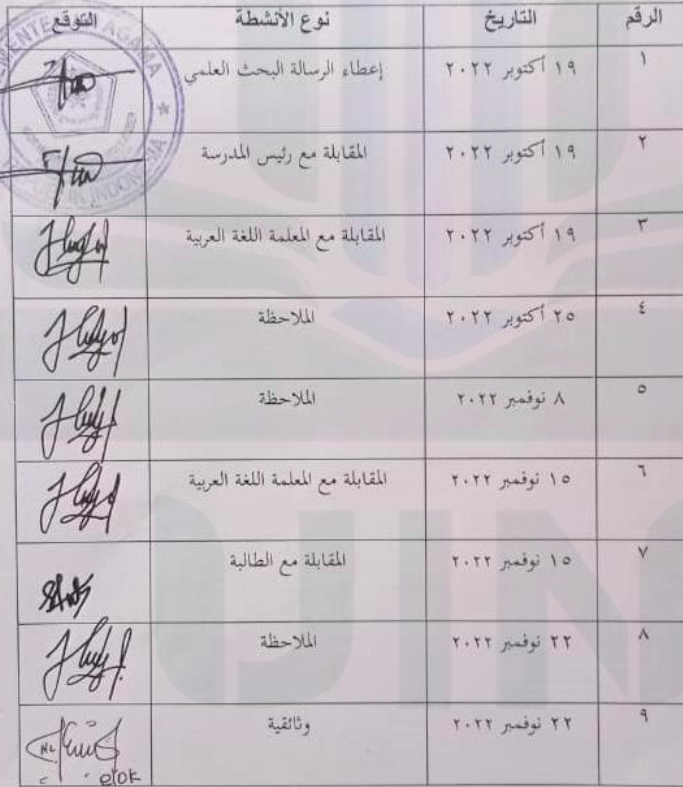 الرقم التاريخ نوع الأنشطة التوقع
١ ١٩ أكتوبر ٢٠٢٢ إعطاء الرسالة البحث العلمي
٢ ١٩ أكتوبر ٢٠٢٢ المقابلة مع رئيس المدرسة
٣ ١٩ أكتوبر ٢٠٢٢ المقابلة مع المعلمة اللغة العربية
٤ ٢٥ أكتوبر ٢٠٢٢ الملاحظة
٥ ٨ نوفمبر ٢٠٢٢ الملاحظة
٦ ١٥ نوفمبر ٢٠٢٢ المقابلة مع المعلمة اللغة العربية
٧ ١٥ نوفمبر ٢٠٢٢ المقابلة مع الطالبة
٨ ٢٢ نوفمبر ٢٠٢٢ الملاحظة
٩ ٢٢ نوفمبر ٢٠٢٢ وثائقية
AGAMA
INDONESIA
UIN
elok